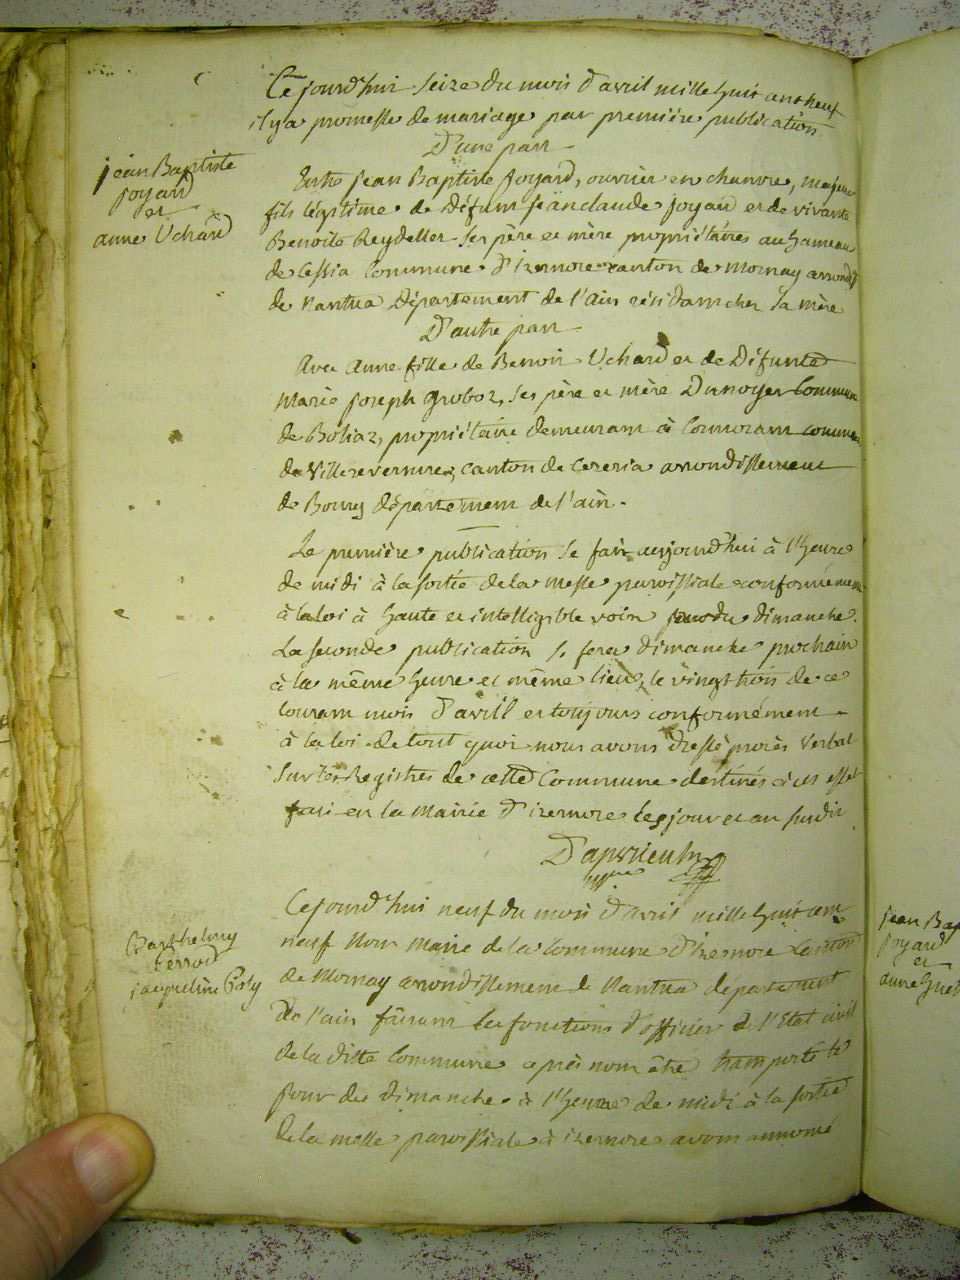 Cejourd'hui seize du mois d'avril mille huit cent neuf
il y a promesse de mariage par première publication
D'une part
jean Baptiste
joyard
et
anne Uchard
Entre jean Baptiste joyard, ouvrier en chanvre, majeur
fils légitime de défunt jeanclaude joyard et de vivante
Benoite Reydellet ses père et mère propriétaires au hameau
de Cessia Commune d'izernore canton de Mornay arrondt
de Nantua Département de l'ain résidant chez sa mère
D'autre part
Avec Anne fille de Benoit Uchard et de Défunte
Marie joseph groboz, ses père et mère Dunoyer Commune
de Bohaz, propriétaire demeurant à Cormoram commune
de Villereversure, canton de Ceseria arrondissement
de Bourg département de l'ain.
La première publication se fait aujourd'hui à l'heure
de midi à la sortie de la messe paroissiale conformément
à la loi à haute et intelligible voix jour du dimanche.
La seconde publication se fera dimanche prochain
à la même heure et même lieu, le vingt trois de ce
courant mois d'avril et toujours conformément
à la loi de tout quoi nous avons dressé procès verbal
sur les Registres de cette Commune destinés à cet effet
fait en la Mairie d'izernore les jour et an susdit
Cejourd'hui neuf du mois d'avril mille huit cent
neuf Nous Maire de la Commune d'izernore Canton
de Mornay arrondissement de Nantua departement
De l'ain faisant les fonctions d'officier de l'Etat civil
de la ditte Commune après nous être transporté le
jour de dimanche à l'heure de midi à la sortie
de la messe paroissiale à izernore avons annoncé
Barthelmy
perrod
jacqueline
jean Bap
joyard
et
anne